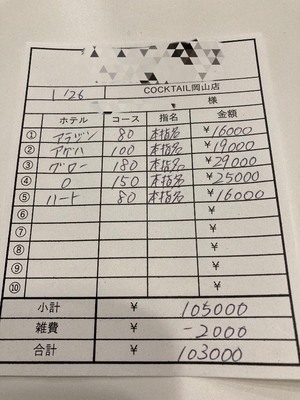 COCKTAIL岡山店
1/26 様
ホテル コース 指名 金額
① アラジン 80 本指名 ¥16000
② アゲハ 100 本指名 ¥19000
③ グロー 180 本指名 ¥29000
④ O 150 本指名 ¥25000
⑤ ハート 80 本指名 ¥16000
⑥ ¥
⑦ ¥
⑧ ¥
⑨ ¥
⑩ ¥
小計 ¥ 105000
雑費 ¥ -2000
合計 ¥ 103000